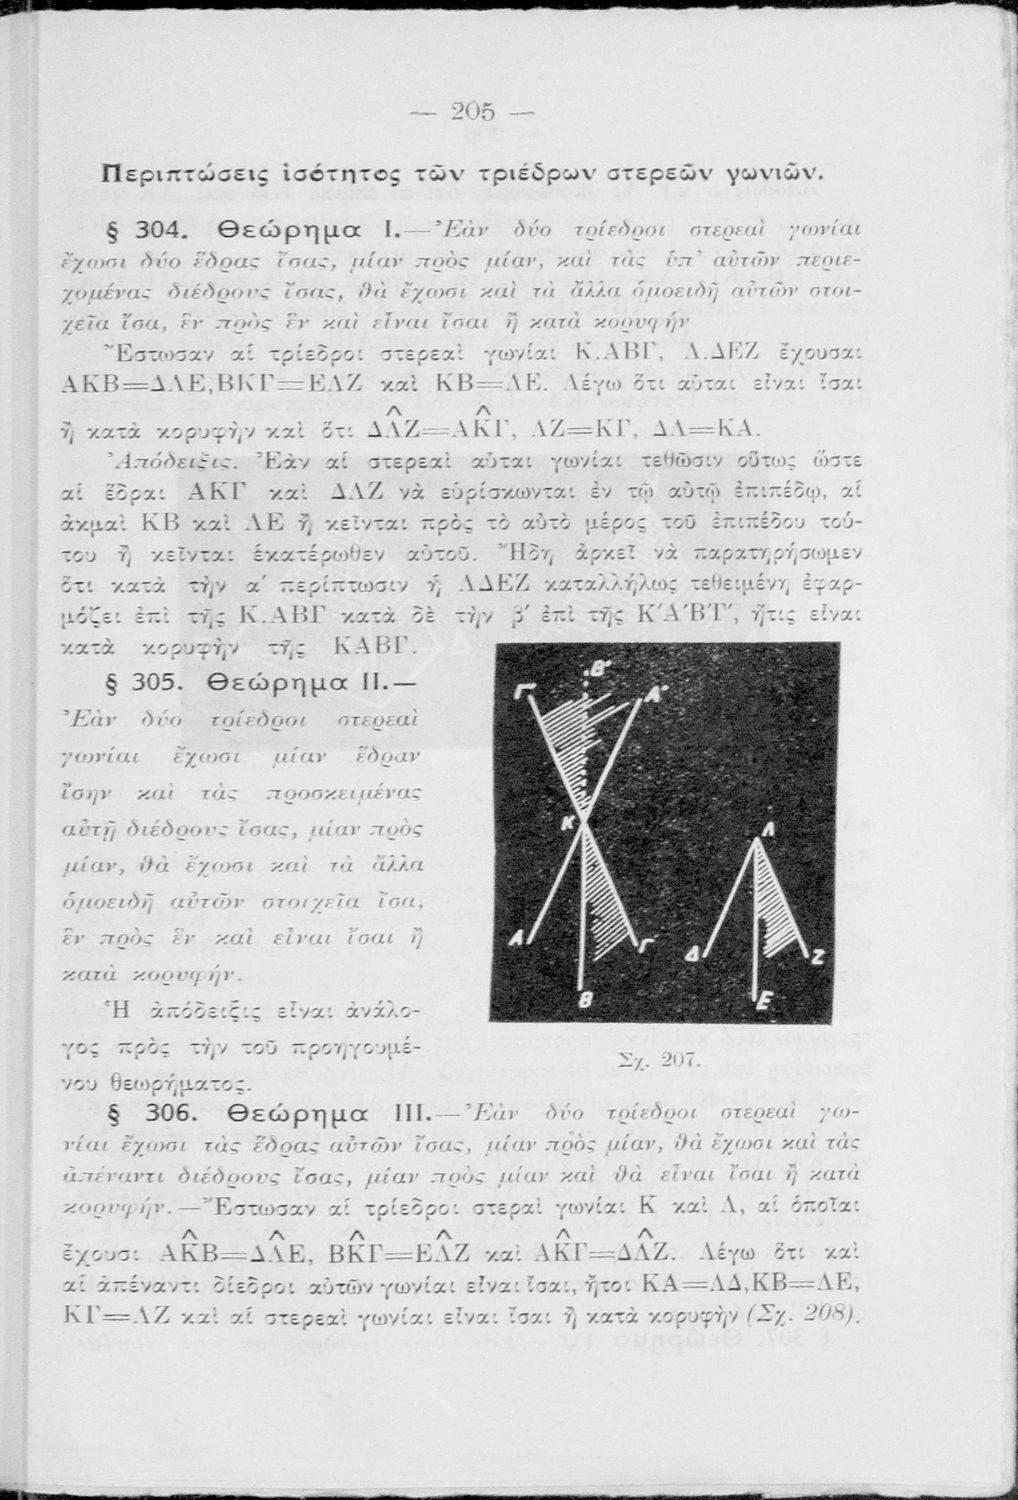 — 205 —
Περιπτώσεις ἰσότητος τῶν τριέδρων στερεῶν γωνιῶν.
§ 304. Θεώρημα I.—Ἐὰν δύο τρίεδροι στερεαὶ γωνίαι
ἔχωσι δύο ἕδρας ἴσας, μίαν πρὸς μίαν, καὶ τὰς ὑπ' αὐτῶν περιε-
χομένας διέδρους ἴσας, θὰ ἔχωσι καὶ τὰ ἄλλα ὁμοειδῆ αὐτῶν στοι-
χεῖα ἴσα, ἓν πρὸς ἓν καὶ εἶναι ἴσαι ἢ κατὰ κορυφήν
Ἔστωσαν αἱ τρίεδροι στερεαὶ γωνίαι Κ.ΑΒΓ, Λ.ΔΕΖ ἔχουσαι
ΑΚΒ=ΔΛΕ,ΒΚΓ=ΕΛΖ καὶ ΚΒ=ΛΕ. Λέγω ὅτι αὗται εἶναι ἴσαι
ἢ κατὰ κορυφὴν καὶ ὅτι ΔΛ̂Ζ=ΑΚ̂Γ, ΛΖ=ΚΓ, ΔΛ=ΚΑ.
Ἀπόδειξις. Ἐὰν αἱ στερεαὶ αὗται γωνίαι τεθῶσιν οὕτως ὥστε
αἱ ἕδραι ΑΚΓ καὶ ΔΛΖ νὰ εὑρίσκωνται ἐν τῷ αὐτῷ ἐπιπέδῳ, αἱ
ἀκμαὶ ΚΒ καὶ ΛΕ ἢ κεῖνται πρὸς τὸ αὐτὸ μέρος τοῦ ἐπιπέδου τού-
του ἢ κεῖνται ἑκατέρωθεν αὐτοῦ. Ἤδη ἀρκεῖ νὰ παρατηρήσωμεν
ὅτι κατὰ τὴν α′ περίπτωσιν ἡ ΛΔΕΖ καταλλήλως τεθειμένη ἐφαρ-
μόζει ἐπὶ τῆς Κ.ΑΒΓ κατὰ δὲ τὴν β′ ἐπὶ τῆς Κ′Α′Β′Γ′, ἥτις εἶναι
κατὰ κορυφὴν τῆς ΚΑΒΓ.
§ 305. Θεώρημα II.—
Ἐὰν δύο τρίεδροι στερεαὶ
γωνίαι ἔχωσι μίαν ἕδραν
ἴσην καὶ τὰς προσκειμένας
αὐτῇ διέδρους ἴσας, μίαν πρὸς
μίαν, θὰ ἔχωσι καὶ τὰ ἄλλα
ὁμοειδῆ αὐτῶν στοιχεῖα ἴσα,
ἓν πρὸς ἓν καὶ εἶναι ἴσαι ἢ
κατὰ κορυφήν.
Ἡ ἀπόδειξις εἶναι ἀνάλο-
γος πρὸς τὴν τοῦ προηγουμέ-
νου θεωρήματος.
Β′
Γ′
Α′
Κ
Λ
Α
Γ
Δ
Ζ
Β
Ε
Σχ. 207.
§ 306. Θεώρημα III.—Ἐὰν δύο τρίεδροι στερεαὶ γω-
νίαι ἔχωσι τὰς ἕδρας αὐτῶν ἴσας, μίαν πρὸς μίαν, θὰ ἔχωσι καὶ τὰς
ἀπέναντι διέδρους ἴσας, μίαν πρὸς μίαν καὶ θὰ εἶναι ἴσαι ἢ κατὰ
κορυφήν.—Ἔστωσαν αἱ τρίεδροι στεραὶ γωνίαι Κ καὶ Λ, αἱ ὁποῖαι
ἔχουσι ΑΚ̂Β=ΔΛ̂Ε, ΒΚ̂Γ=ΕΛ̂Ζ καὶ ΑΚ̂Γ=ΔΛ̂Ζ. Λέγω ὅτι καὶ
αἱ ἀπέναντι δίεδροι αὐτῶν γωνίαι εἶναι ἴσαι, ἤτοι ΚΑ=ΛΔ,ΚΒ=ΛΕ,
ΚΓ=ΛΖ καὶ αἱ στερεαὶ γωνίαι εἶναι ἴσαι ἢ κατὰ κορυφὴν (Σχ. 208).